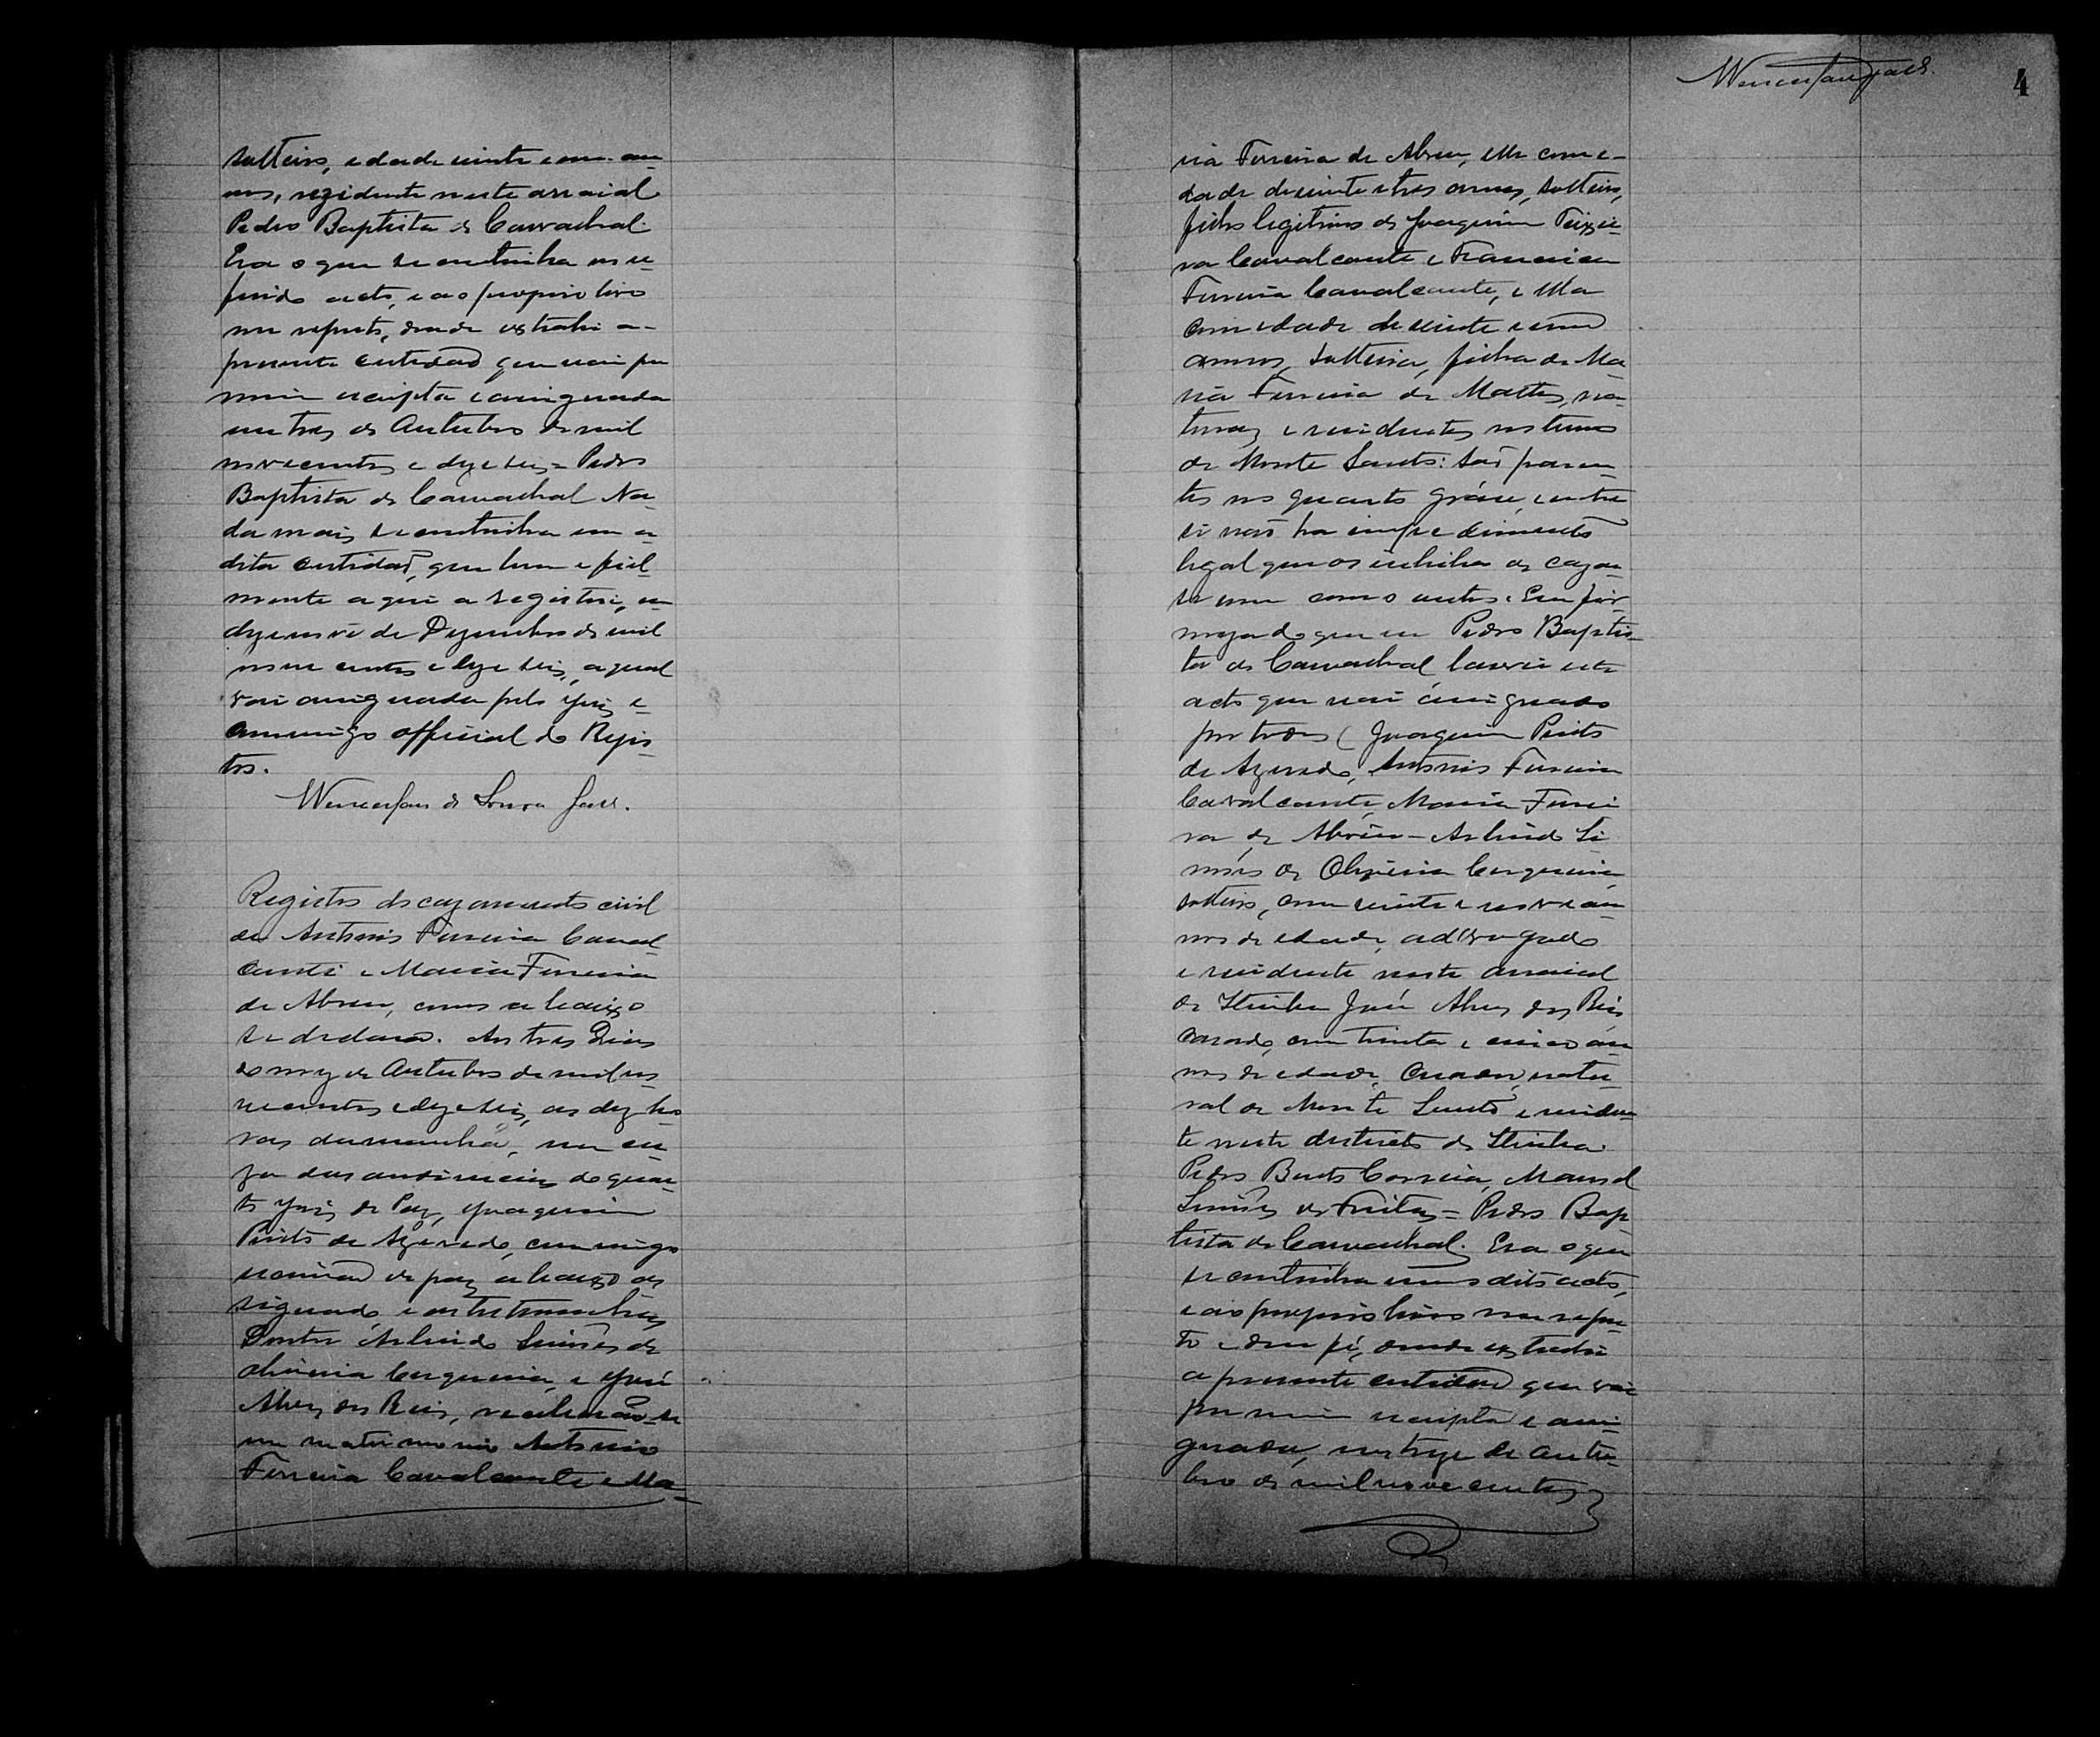 solteiro, edade vinte e um an-
nos, rezidente neste arraial
Pedro Baptista de Carvalhal.
Era o que se continha no re-
ferido acto, e ao proprio livro
me reporto, donde extrahi a
presente certidão que vai por
mim escripta e assignada
em tres de Outubro de mil
novecentos e dezeseis = Pedro
Baptista de Carvalhal Na-
da mais se continha em a
dita certidão, que bem e fiel-
mente aqui a registrei, em
dezenove de Dezembro de mil
nove centos e dezeseis, a qual
vai assignada pelo Juiz e
commigo official do Regis
tro.
Wenceslau de Souza
Registro do cazamento civil
de Antonio Ferreira Caval
canti e Maria Ferreira
de Abreu, como a baixo
se declara. Aos tres dias
do mez de Outubro de mil no-
vecentos e dezeseis, as dez ho
ras da manhã, na ca-
za das audiencias do quar-
to Juiz de Paz, Joaquim
Pinto de Azevedo, commigo
escrivão de paz a baixo as
signado e as testemunhas
Doutor Arlindo Simões de
Oliveira Cerqueira, e José
Alves dos Reis, receberão-se
em matrimonio Antonio
Ferreira Cavalcante e Ma-
4
ria Ferreira de Abreu, elle com e-
dade de vinte e tres annos, solteiro,
filho legitimo de Joaquim Teixei-
ra Cavalcante e Francisca
Ferreira Cavalcante, e ella
com edade de vinte e um
annos, solteira, filha de Ma
ria Ferreira de Mattos, na-
turaes e rezidentes no termo
de Monte Santo: são paren-
tes no quarto gráu, entre
si não ha impedimento
legal que os inhiba de cazar
se um com o outro. Em fir
meza do que eu Pedro Baptis-
ta de Carvalhal lavrei este
acto que vai assignado
por todos (Joaquim Pinto
de Azevedo, Antonio Ferreira
Cavalcante, Maria Ferrei
ra de Abreu - Arlindo Si
mões de Oliveira Cerqueira
solteiro, com vinte e nove an-
nos de edade, advogado
e rezidente neste arraial
de José Alves dos Reis
casado, com trinta e cinco an
nos de edade, natu-
ral de Monte Santo e residen
te neste districto de
Pedro Bento Correia, Manoel
Simões de Freitas = Pedro Bap
tista de Carvalhal. Era o que
se continha em o dito acto,
e ao proprio livro me repor-
to e dou fé, donde extrahi
a presente certidão que vai
por mim escripta e assi-
gnada, em treze de Outu-
bro de mil nove centos